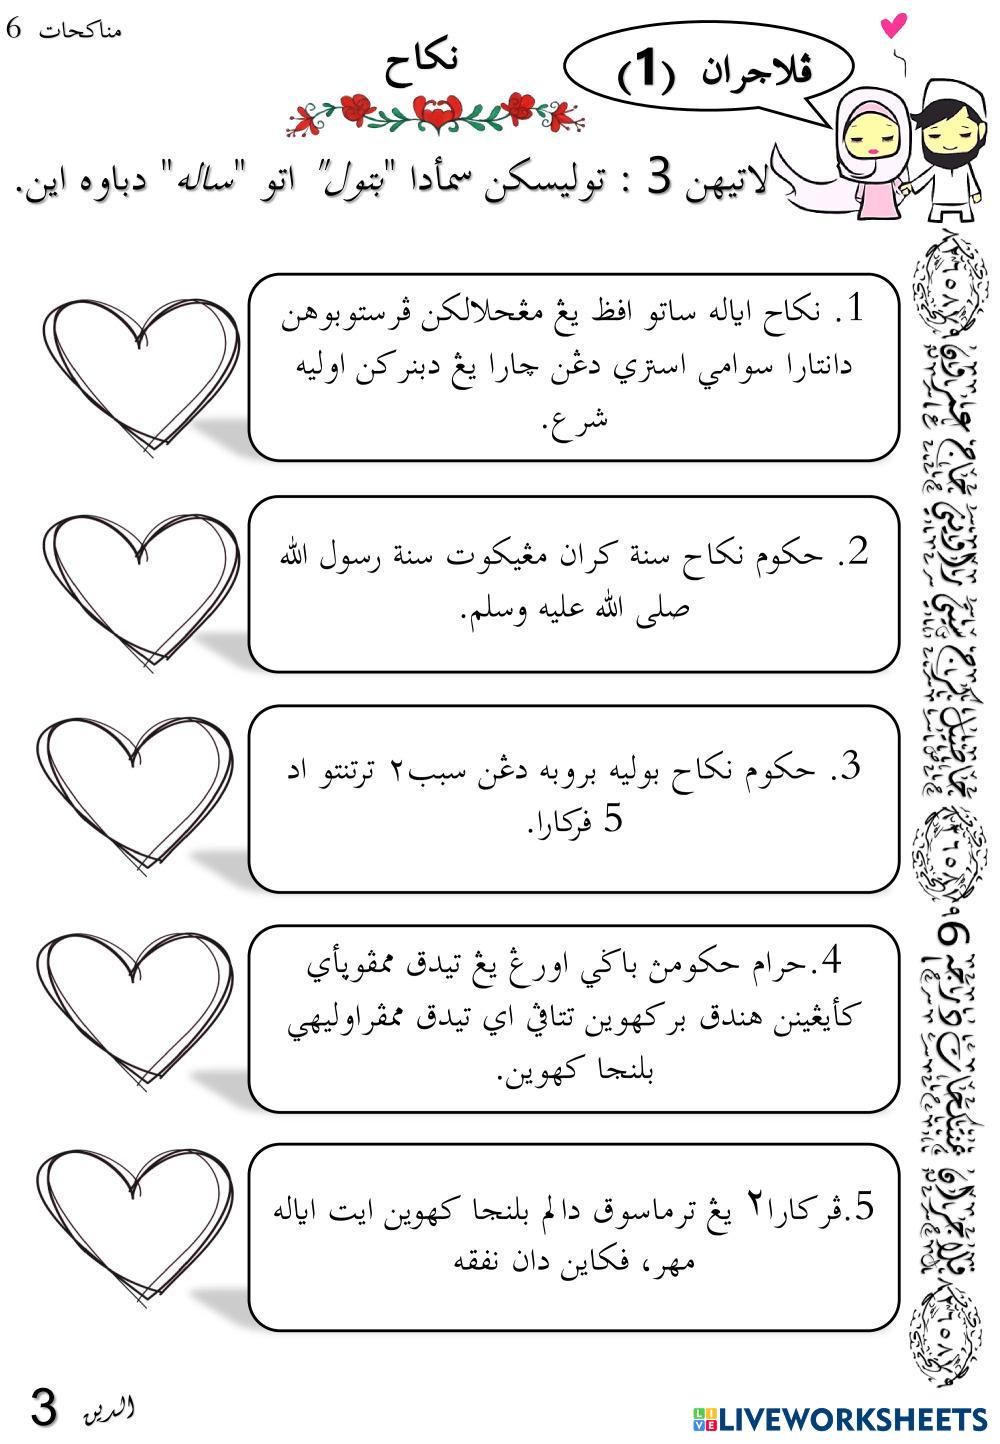 مناكحات 6
ڤلاجران (1)
نكاح
لاتيهن 3 : توليسكن سمأدا "بتول" اتو "ساله" دباوه اين.
1. نكاح اياله ساتو افظ يڠ مڠحلالكن ڤرستوبوهن
دانتارا سوامي استري دڠن چارا يڠ دبنركن اوليه
شرع.
2. حكوم نكاح سنة كران مڠيكوت سنة رسول الله
صلى الله عليه وسلم.
3. حكوم نكاح بوليه بروبه دڠن سبب٢ ترتنتو اد
5 فركارا.
4.حرام حكومڽ باݢي اورڠ يڠ تيدق ممڤوڽأي
كأيڠينن هندق بركهوين تتاڤي اي تيدق ممڤراوليهي
بلنجا كهوين.
5.ڤركارا٢ يڠ ترماسوق دالم بلنجا كهوين ايت اياله
مهر، فكاين دان نفقه
الدين 3
LIVEWORKSHEETS